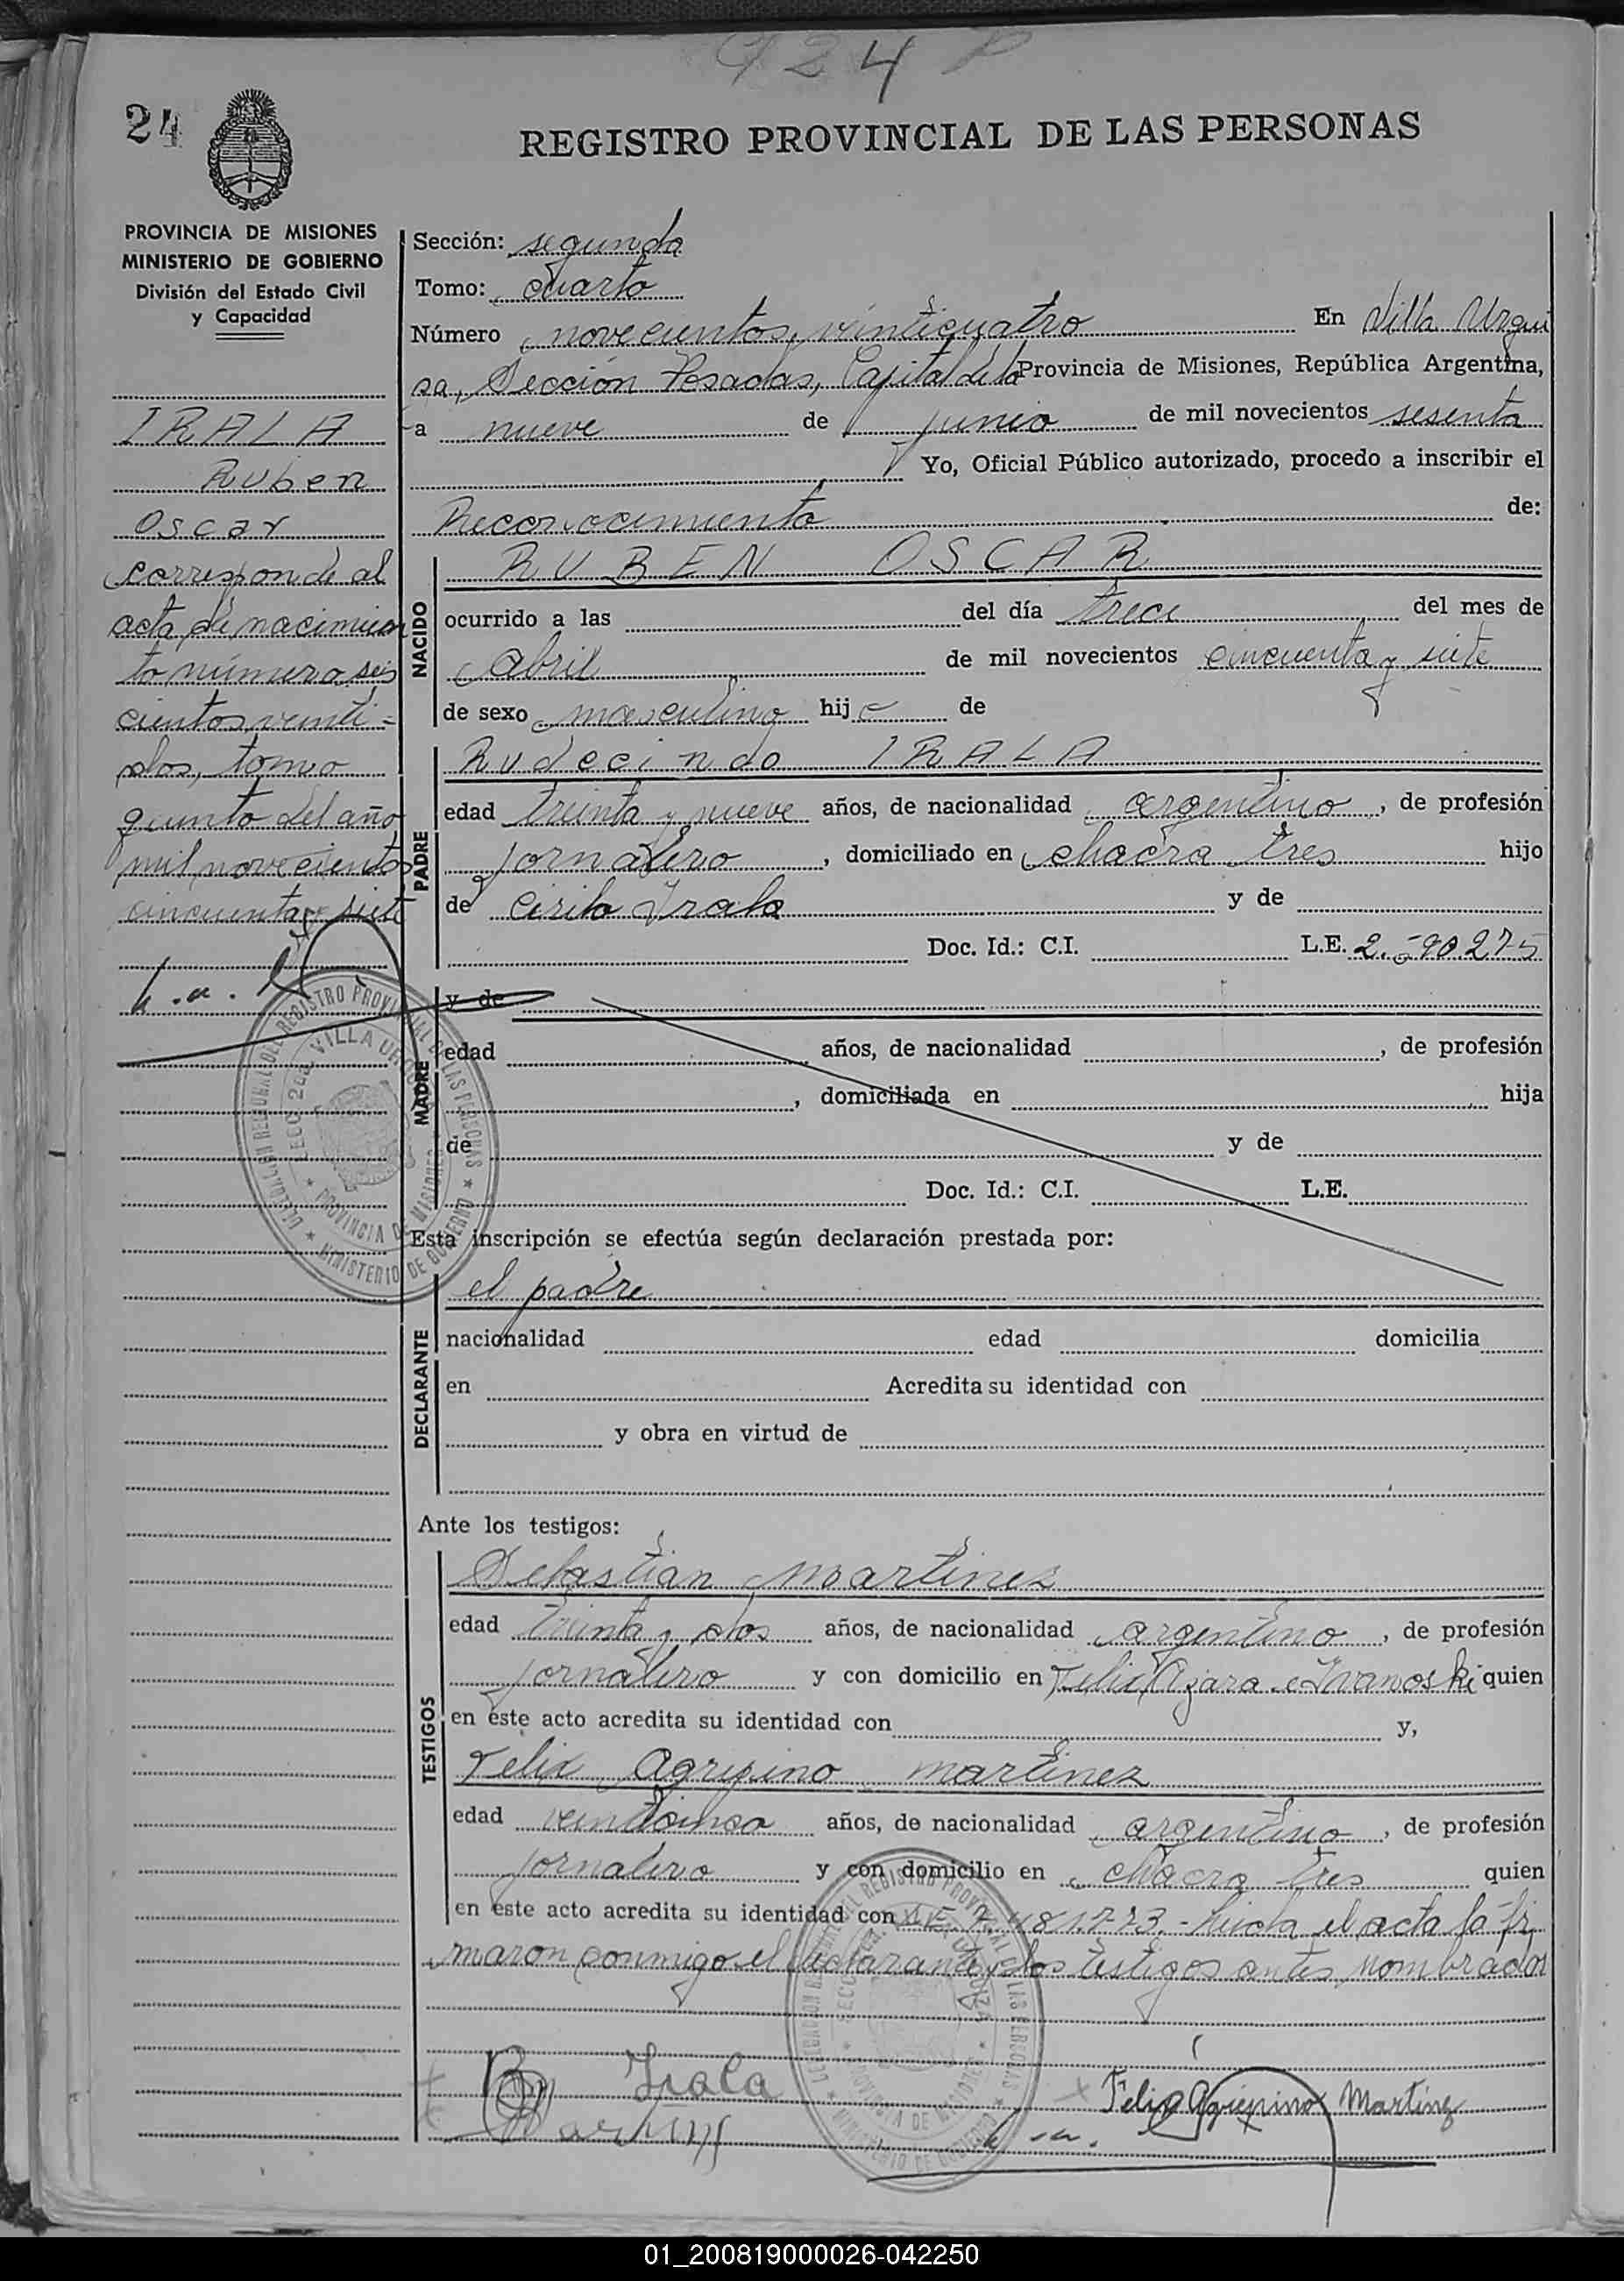 924 P
24
REGISTRO PROVINCIAL DE LAS PERSONAS
PROVINCIA DE MISIONES
MINISTERIO DE GOBIERNO
División del Estado Civil
y Capacidad
IRALA
Ruben
Oscar
corresponde al
acta de nacimien
to número seis
cientos veinti-
dos, tomo
quinto del año
mil novecientos
cincuenta y siete
Sección: segunda
Tomo: cuarto
Número novecientos veinticuatro En Villa Urqui
sa, Sección Posadas, Capital de la Provincia de Misiones, República Argentina,
a nueve de junio de mil novecientos sesenta
Yo, Oficial Público autorizado, procedo a inscribir el
Reconocimiento de:
NACIDO
RUBEN OSCAR
ocurrido a las del día trece del mes de
Abril de mil novecientos cincuenta y siete
de sexo masculino hijo de
PADRE
Rudecindo IRALA
edad treinta y nueve años, de nacionalidad argentino, de profesión
jornalero, domiciliado en chacra tres hijo
de Cirilo Irala y de
Doc. Id.: C.I. L.E.
MADRE
y de
edad años, de nacionalidad , de profesión
, domiciliada en hija
de y de
Doc. Id.: C.I. L.E.
Esta inscripción se efectúa según declaración prestada por:
DECLARANTE
el padre
nacionalidad edad domicilia
en Acredita su identidad con
y obra en virtud de
Ante los testigos:
TESTIGOS
Sebastian Martinez
edad treinta y dos años, de nacionalidad argentino, de profesión
jornalero y con domicilio en Felix Azara e Ivanoski quien
en este acto acredita su identidad con y,
Felix Agripino Martinez
edad veinticinco años, de nacionalidad argentino, de profesión
jornalero y con domicilio en chacra tres quien
en este acto acredita su identidad con el acta la fir
maron conmigo el declarante y los testigos antes nombrados
Irala
Felix Agripino Martinez
01_200819000026-042250